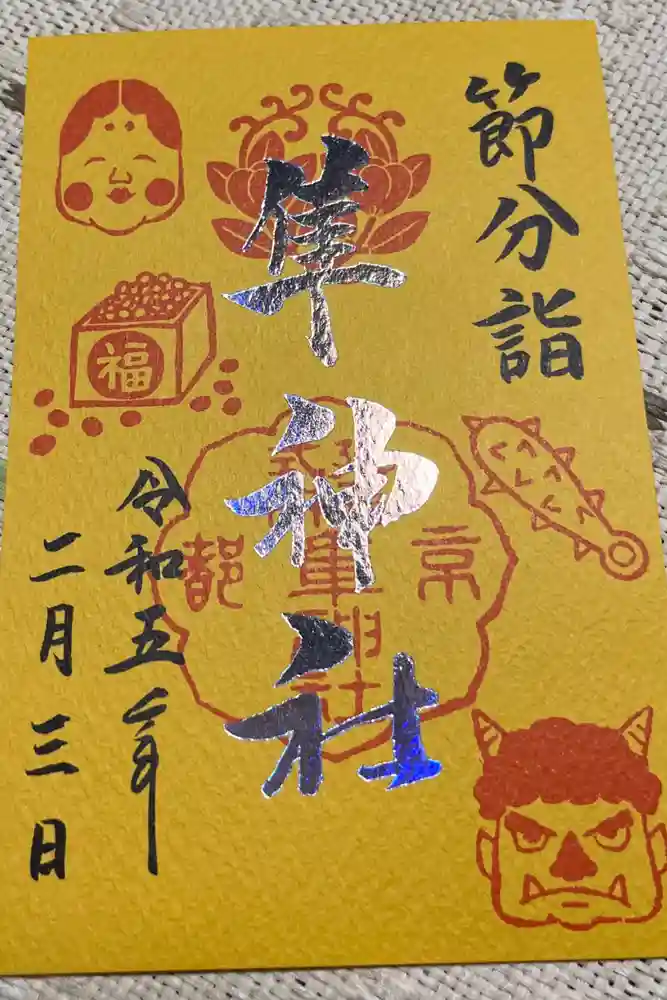 節分詣
隼神社
京
都
福
令和五年
二月三日